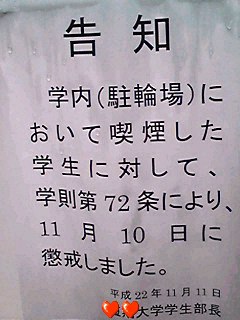 告知
学内(駐輪場)に
おいて喫煙した
学生に対して、
学則第72条により、
11月10日に
懲戒しました。
平成22年11月11日
大学学生部長